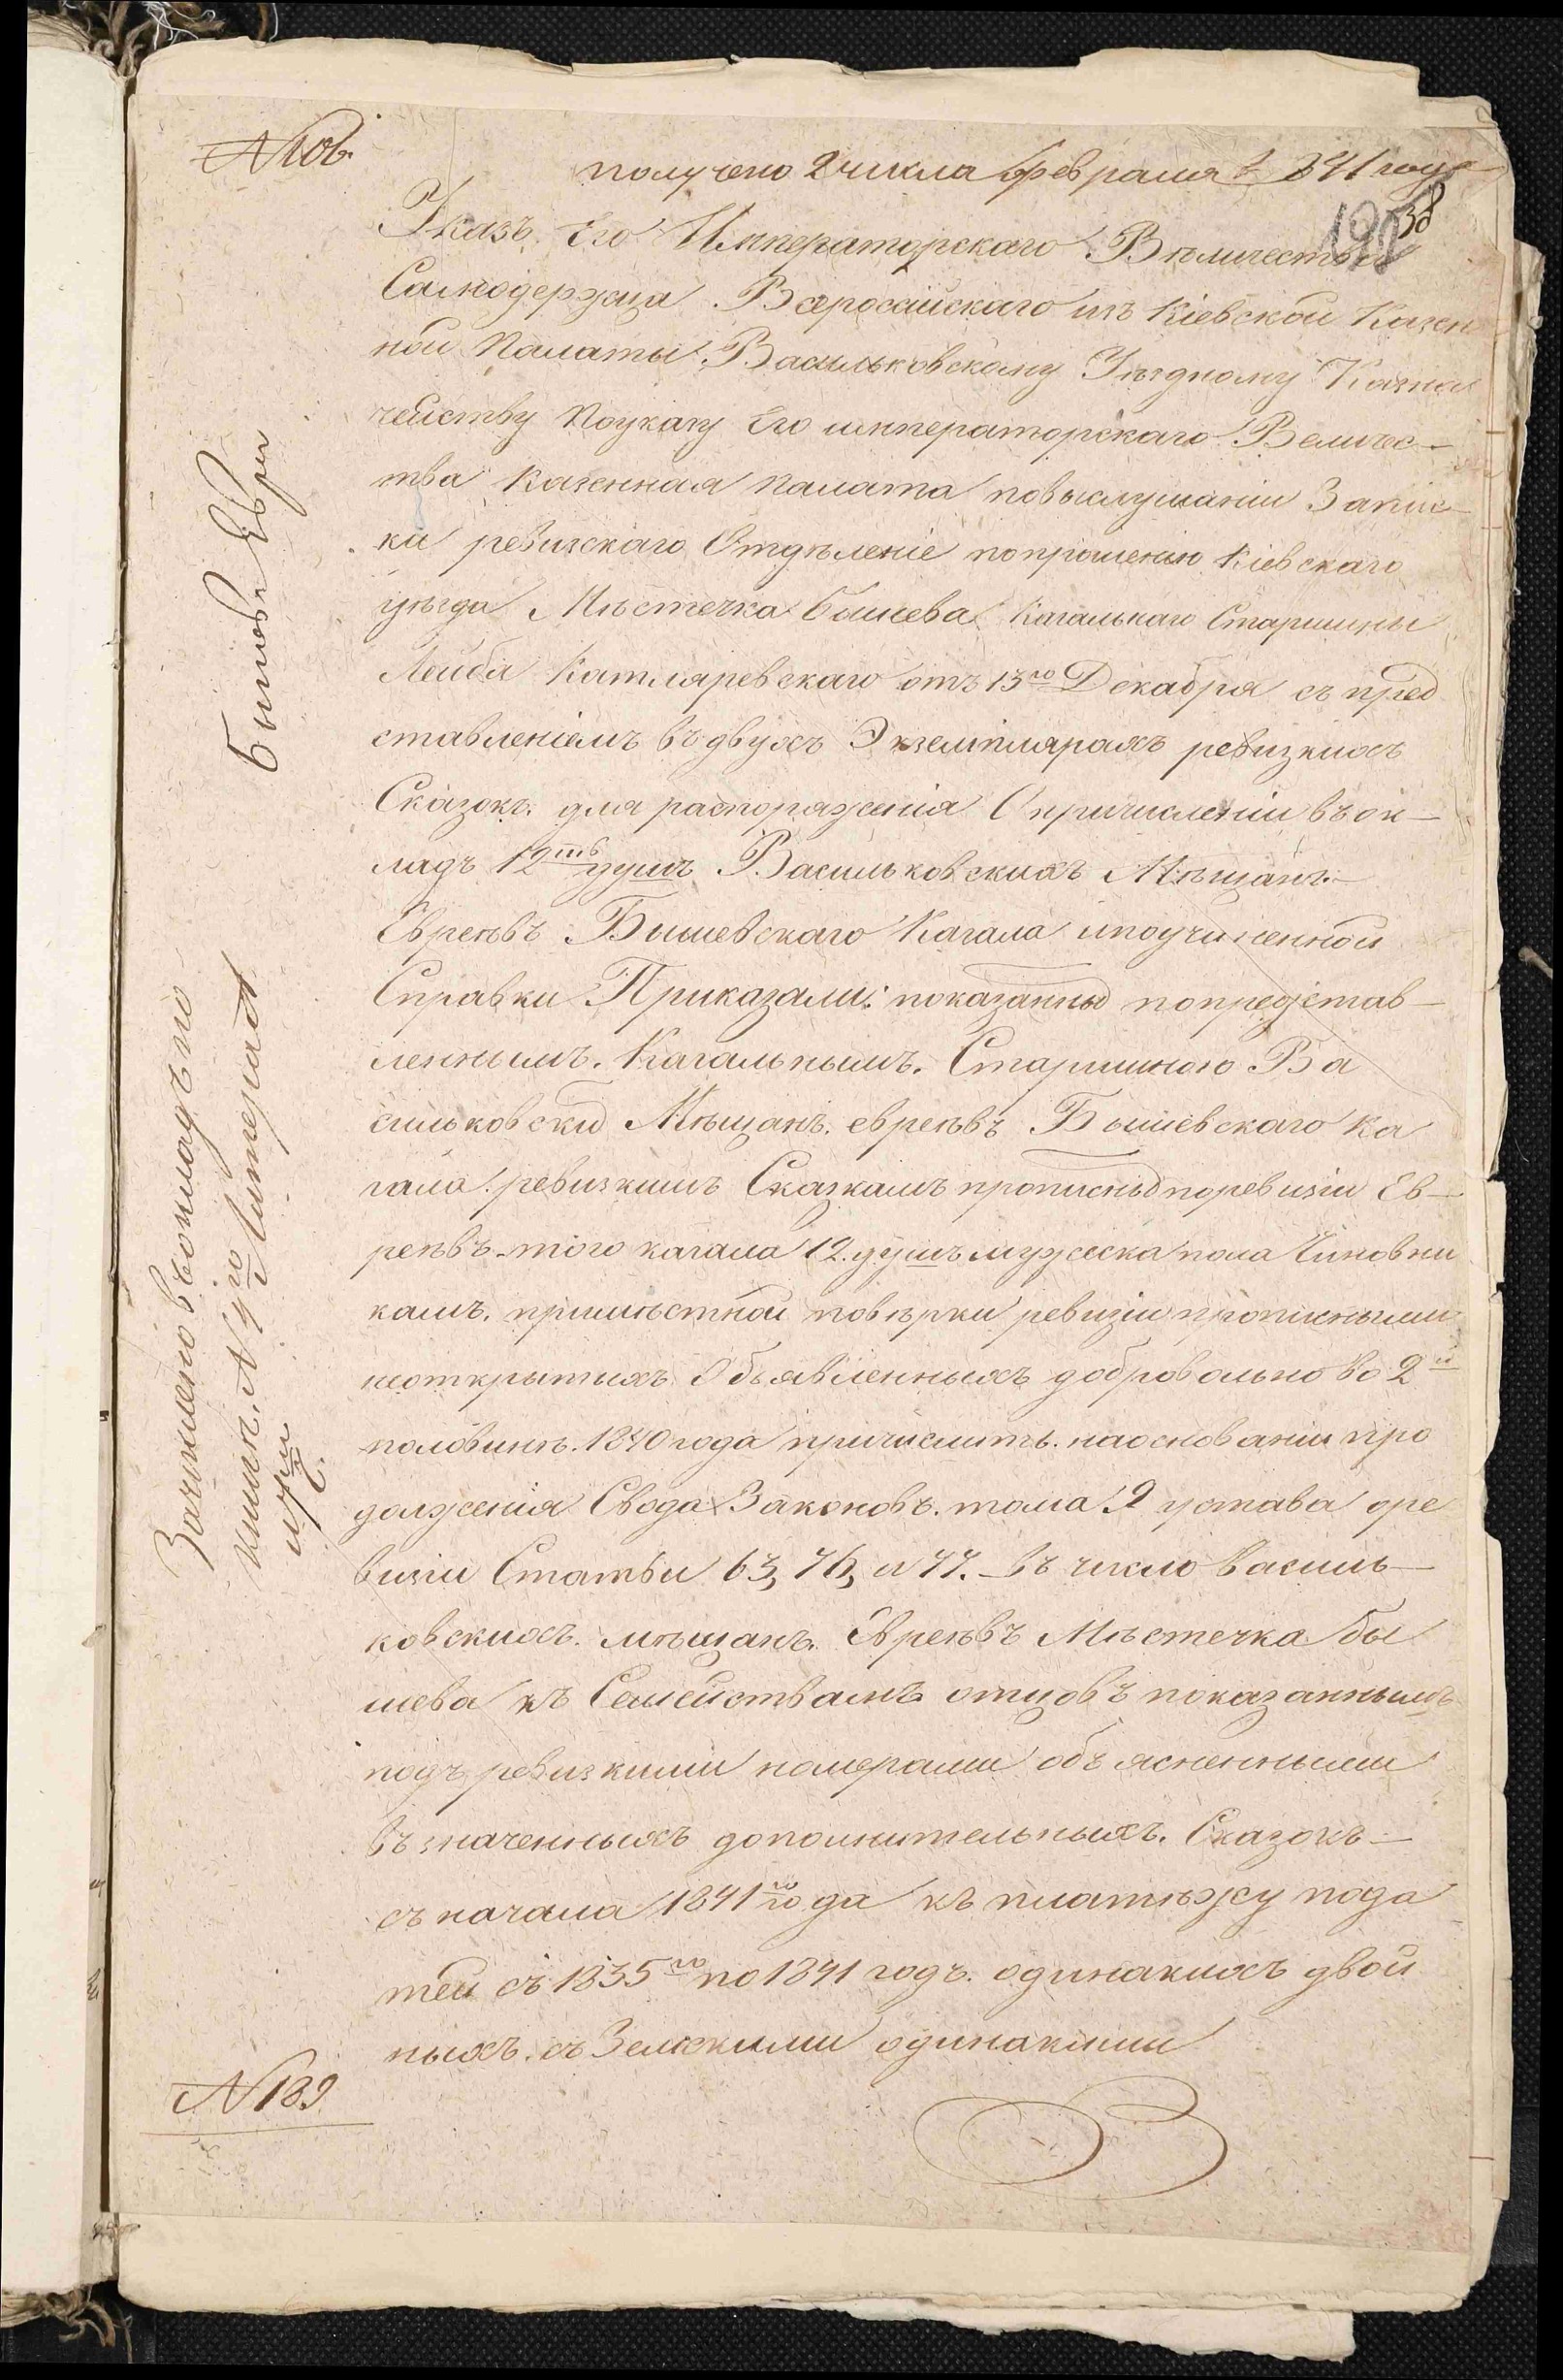 N 106.
получено 2 числа февраля 1841 года
38
Указъ Его Императорскаго Величества
Самодержца Всеросийскаго изъ Кіевской Казен
ной Палаты Васильковскому Уѣздному Казна
чейству По указу Его императорскаго Величес-
тва Казенная Палата по выслушаніи Запис-
ки ревизскаго Отдѣленіе по прошенію Кіевскаго
уѣзда Мѣстечка Бышева Кагальнаго Старшины
Лейба Катляревскаго отъ 13го Декабря съ пред
ставленіемъ въ двухъ Экземплярахъ ревизкихъ
Сказокъ для распоряженія О причисленіи въ ок-
ладъ 12ть душъ Васильковскихъ Мѣщанъ-
Евреевъ Бышевскаго Кагала и по учиненной
Справки Приказали: показанных по представ-
леннымъ Кагальнымъ Старшиною Ва
сильковских Мѣщанъ евреевъ Бышевскаго Ка
гала ревизкимъ Сказкамъ прописных по ревизіи Ев-
реевъ того кагала 12. душъ мужеска пола Чиновни
камъ при мѣстной повѣрки ревизіи прописными
неоткрытихъ Объявленныхъ добровольно во 2й
половинѣ 1840 года причислить на основаніи про
долженія Свода Законовъ тома 9 устава о ре
визіи Статьи 63, 76, и 77. въ число василь-
ковскихъ мѣщанъ Евреевъ Мѣстечка Бы
шева къ Семействамъ отцовъ показаннымъ
подъ ревизкими номерами объясненными
въ значенныхъ дополнительныхъ Сказокъ-
съ начала 1841го года къ платѣжу пода
тей съ 1835го по 1841 годъ одинакихъ двой
ныхъ съ Земскими одинакими
N 189
Бышев Евреи
Зачислено въ окладъ по
книгѣ N го Литерад